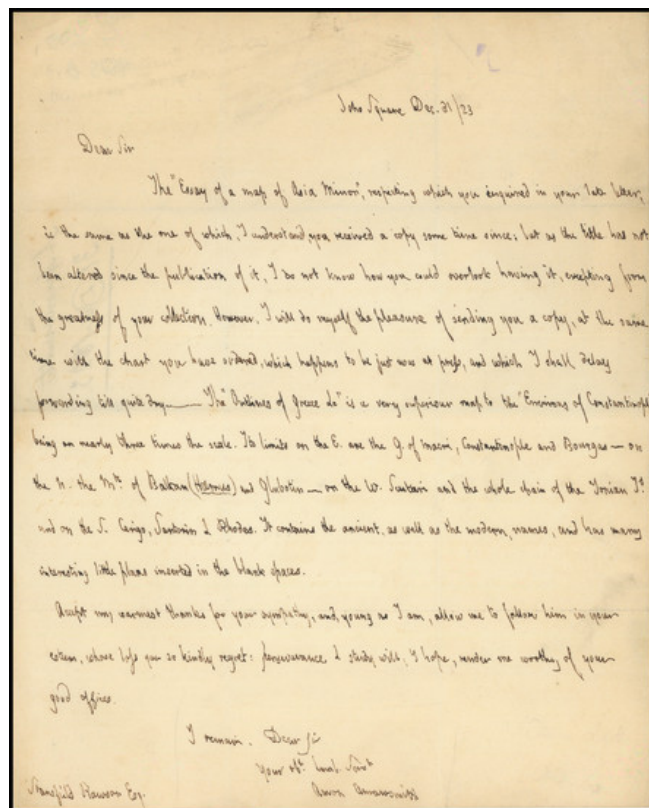 Soho Square Dec. 31/23
Dear Sir
The "Essay of a map of Asia Minor", respecting which you enquired in your late letter,
is the same as the one of which, I understand, you received a copy some time since; but as the title has not
been altered since the publication of it, I do not know how you could overlook having it, excepting from
the greatness of your collection. However, I will do myself the pleasure of sending you a copy, at the same
time with the chart you have ordered, which happens to be just now at press, and which I shall delay
forwarding till quite dry — The "Outlines of Greece &c" is a very superiour map to the "Environs of Constantinople
being on nearly three times the scale. Its limits on the E. are the G. of Macri, Constantinople and Bourgas — on
the N. the Mts of Balkan (Haemus) and Glubotin — on the W. Scutari and the whole chain of the Ionian Is.
and on the S. Cerigo, Santorin & Rhodes. It contains the ancient, as well as the modern, names, and has many
interesting little plans inserted in the blank spaces.
Accept my warmest thanks for your sympathy, and, young as I am, allow me to follow him in your
esteem, whose loss you so kindly regret: perseverance & study will, I hope, render me worthy, of your
good offices.
I remain. Dear Sir
Your obt. humb. Servt
Aaron Arrowsmith
Stansfield Rawson Esq.